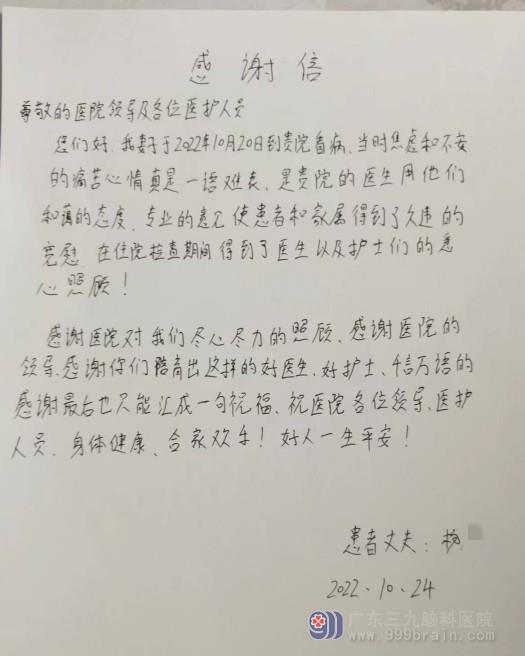 感谢信
尊敬的医院领导及各位医护人员
您们好,我妻子于2022年10月20日到贵院看病、当时焦虑和不安
的痛苦心情真是一语难表、是贵院的医生用他们
和蔼的态度、专业的意见使患者和家属得到了久违的
宽慰、在住院检查期间得到了医生以及护士们的悉
心照顾!
感谢医院对我们尽心尽力的照顾、感谢医院的
领导、感谢你们陪育出这样的好医生、好护士、千言万语的
感谢最后也只能汇成一句祝福、祝医院各位领导、医护
人员、身体健康、合家欢乐!好人一生平安!
患者丈夫:杨
2022.10.24
广东三九脑科医院
www.999brain.com